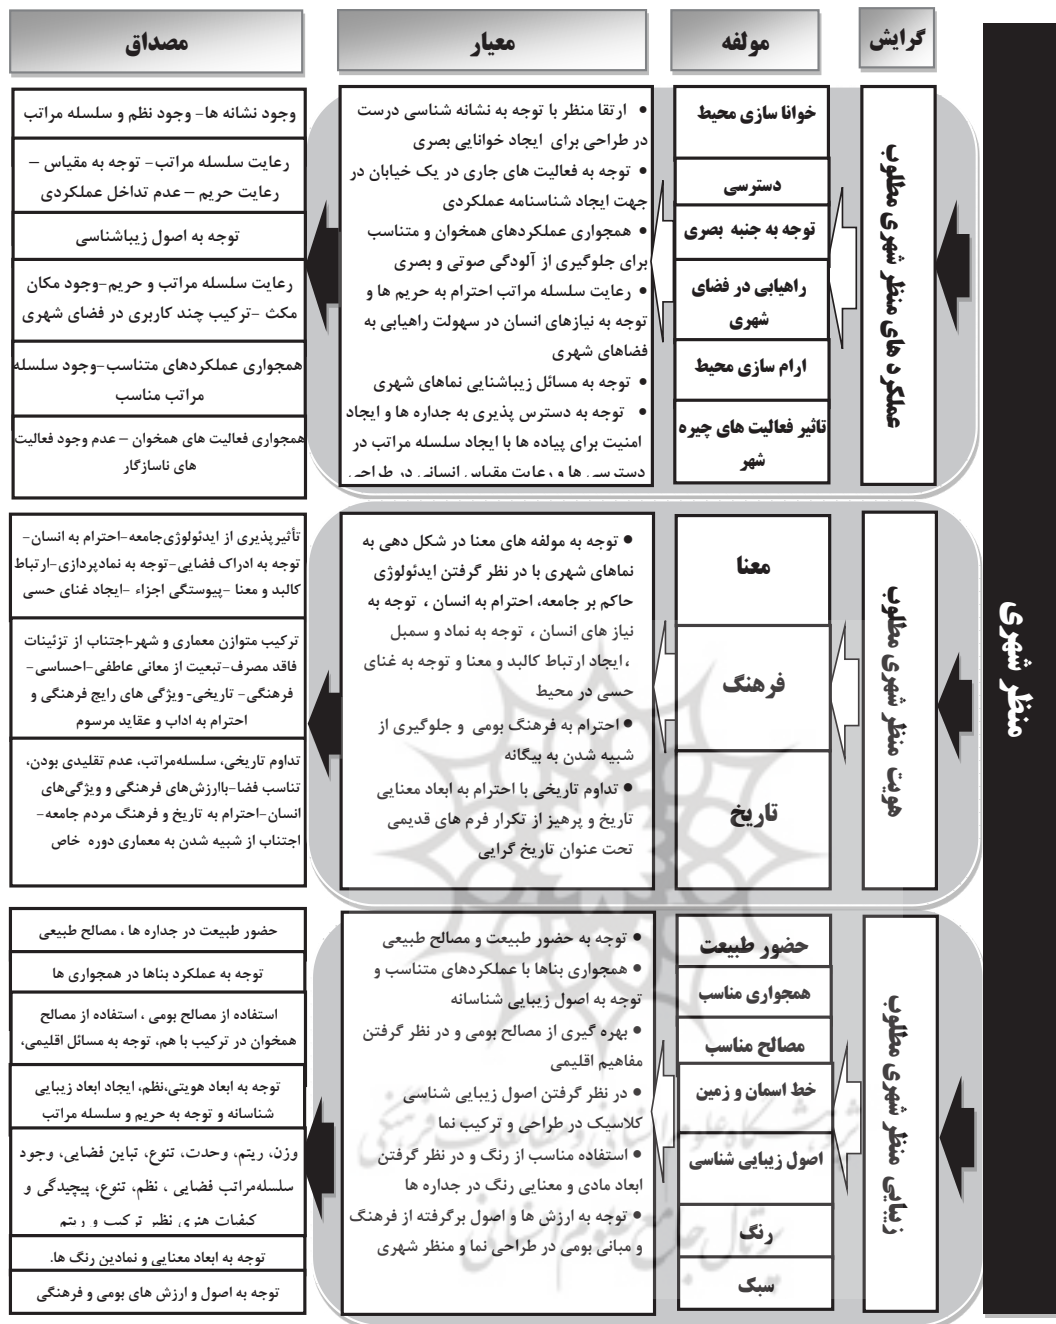 گرایش
مولفه
معیار
مصداق
منظر شهری
عملکرد های منظر شهری مطلوب
خوانا سازی محیط
دسترسی
توجه به جنبه بصری
راهیابی در فضای
شهری
ارام سازی محیط
تاثیر فعالیت های چیره
شهر
● ارتقا منظر با توجه به نشانه شناسی درست
در طراحی برای ایجاد خوانایی بصری
● توجه به فعالیت های جاری در یک خیابان در
جهت ایجاد شناسنامه عملکردی
● همجواری عملکردهای همخوان و متناسب
برای جلوگیری از آلودگی صوتی و بصری
● رعایت سلسله مراتب احترام به حریم ها و
توجه به نیازهای انسان در سهولت راهیابی به
فضاهای شهری
● توجه به مسائل زیباشنایی نماهای شهری
● توجه به دسترس پذیری به جداره ها و ایجاد
امنیت برای پیاده ها با ایجاد سلسله مراتب در
دسترسی ها و رعایت مقیاس انسانی در طراحی
وجود نشانه ها- وجود نظم و سلسله مراتب
رعایت سلسله مراتب- توجه به مقیاس –
رعایت حریم – عدم تداخل عملکردی
توجه به اصول زیباشناسی
رعایت سلسله مراتب و حریم-وجود مکان
مکث -ترکیب چند کاربری در فضای شهری
همجواری عملکردهای متناسب-وجود سلسله
مراتب مناسب
همجواری فعالیت های همخوان – عدم وجود فعالیت
های ناسازگار
هویت منظر شهری مطلوب
معنا
فرهنگ
تاریخ
● توجه به مولفه های معنا در شکل دهی به
نماهای شهری با در نظر گرفتن ایدئولوژی
حاکم بر جامعه، احترام به انسان ، توجه به
نیاز های انسان ، توجه به نماد و سمبل
، ایجاد ارتباط کالبد و معنا و توجه به غنای
حسی در محیط
● احترام به فرهنگ بومی و جلوگیری از
شبیه شدن به بیگانه
● تداوم تاریخی با احترام به ابعاد معنایی
تاریخ و پرهیز از تکرار فرم های قدیمی
تحت عنوان تاریخ گرایی
تأثیرپذیری از ایدئولوژی‌جامعه-احترام به انسان-
توجه به ادراک فضایی-توجه به نمادپردازی-ارتباط
کالبد و معنا -پیوستگی اجزاء -ایجاد غنای حسی
ترکیب متوازن معماری و شهر-اجتناب از تزئینات
فاقد مصرف-تبعیت از معانی عاطفی-احساسی-
فرهنگی- تاریخی- ویژگی های رایج فرهنگی و
احترام به اداب و عقاید مرسوم
تداوم تاریخی، سلسله‌مراتب، عدم تقلیدی بودن،
تناسب فضا-باارزش‌های فرهنگی و ویژگی‌های
انسان-احترام به تاریخ و فرهنگ مردم جامعه-
اجتناب از شبیه شدن به معماری دوره خاص
زیبایی منظر شهری مطلوب
حضور طبیعت
همجواری مناسب
مصالح مناسب
خط اسمان و زمین
اصول زیبایی شناسی
رنگ
سبک
● توجه به حضور طبیعت و مصالح طبیعی
● همجواری بناها با عملکردهای متناسب و
توجه به اصول زیبایی شناسانه
● بهره گیری از مصالح بومی و در نظر گرفتن
مفاهیم اقلیمی
● در نظر گرفتن اصول زیبایی شناسی
کلاسیک در طراحی و ترکیب نما
● استفاده مناسب از رنگ و در نظر گرفتن
ابعاد مادی و معنایی رنگ در جداره ها
● توجه به ارزش ها و اصول برگرفته از فرهنگ
و مبانی بومی در طراحی نما و منظر شهری
حضور طبیعت در جداره ها ، مصالح طبیعی
توجه به عملکرد بناها در همجواری ها
استفاده از مصالح بومی ، استفاده از مصالح
همخوان در ترکیب با هم، توجه به مسائل اقلیمی،
توجه به ابعاد هویتی،نظم، ایجاد ابعاد زیبایی
شناسانه و توجه به حریم و سلسله مراتب
وزن، ریتم، وحدت، تنوع، تباین فضایی، وجود
سلسله‌مراتب فضایی ، نظم، تنوع، پیچیدگی و
کیفیات هنری نظیر ترکیب و ریتم
توجه به ابعاد معنایی و نمادین رنگ ها.
توجه به اصول و ارزش های بومی و فرهنگی
پژوهشگاه علوم انسانی و مطالعات فرهنگی
پرتال جامع علوم انسانی